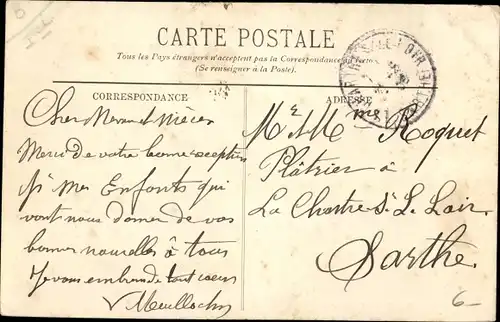 CARTE POSTALE
Tous les Pays étrangers n'acceptent pas la Correspondance au Recto
(Se renseigner à la Poste).
CORRESPONDANCE
ADRESSE
Cher
Merci de votre bonne réception
mes Enfants qui
vont nous donner de vos
bonnes nouvelles à tous
Je vous embrasse de tout cœur
M et Mme Roquet
Plâtrier à
La Chartre s/ L. Loir.
Sarthe
6-